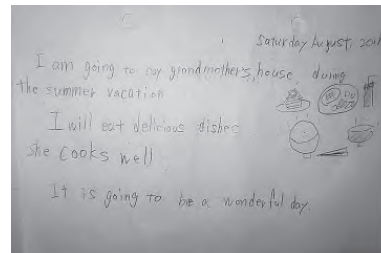 Saturday August, 201
I am going to my grandmother's house during
the summer vacation
I will eat delicious dishes
she cooks well
It is going to be a wonderful day.